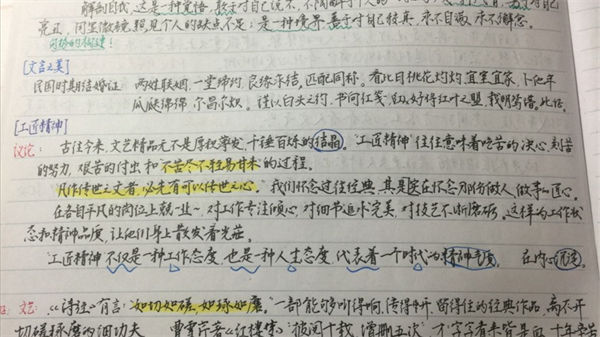 解剖自我,这是一种觉悟,敢于对自己说不,不
亮丑,闭坐微镜,照见个人的缺点不足;是一种境界,善于对自己较真,永不自满,永不懈怠。
[文言之美]
民国时期结婚证:两姓联姻,一堂缔约,良缘永结,匹配同称。看此日桃花灼灼,宜室宜家,卜他年
瓜瓞绵绵,尔昌尔炽。谨以白头之约,书向红笺,好将红叶之盟,载明鸳谱。此证。
[工匠精神]
议论:古往今来,文艺精品无不是厚积薄发,千锤百炼的结晶。"工匠精神"往往意味着吃苦的决心,刻苦
的努力,艰苦的付出和"不苦尽不轻易甘来"的过程。
"凡作传世之文者,必先有可以传世之心。"我们怀念过往经典,其实在怀念那份做人、做事的匠心。
在各自平凡的岗位上兢一业一,对工作专注倾心,对细节追求完美,对技艺不断磨砺。这样的工作状
态和精神品质,让他们身上散发着光茫。
"工匠精神"不仅是一种工作态度,也是一种人生态度,代表着一个时代的精神气质。在内心沉淀。
文艺:《诗经》有言:"如切如磋,如琢如磨。"一部能够叫得响,传得开,留得住的经典作品,离不开
切磋琢磨的细功夫。曹雪芹著《红楼梦》"披阅十载,增删五次",才"字字看来皆是血,十年辛苦